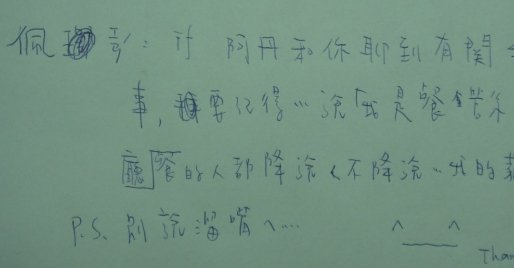 佩彭：討 阿丹和你聊到有關
事，要記得…說「我是餐管系
廳餐的人都降說く不降說..我的
P.S. 別說溜嘴ㄟ…… ^_^
Than